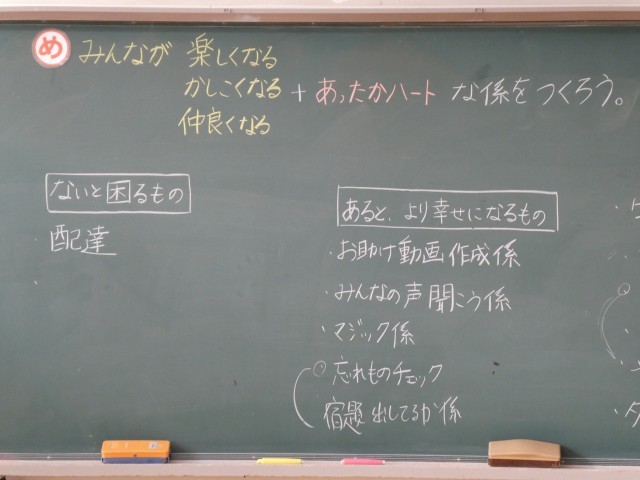 め みんなが 楽しくなる
かしこくなる + あったかハート な係をつくろう。
仲良くなる
ないと困るもの
配達
あると、より幸せになるもの
・お助け動画作成係
・みんなの声聞こう係
・マジック係
忘れものチェック
宿題出してるか係